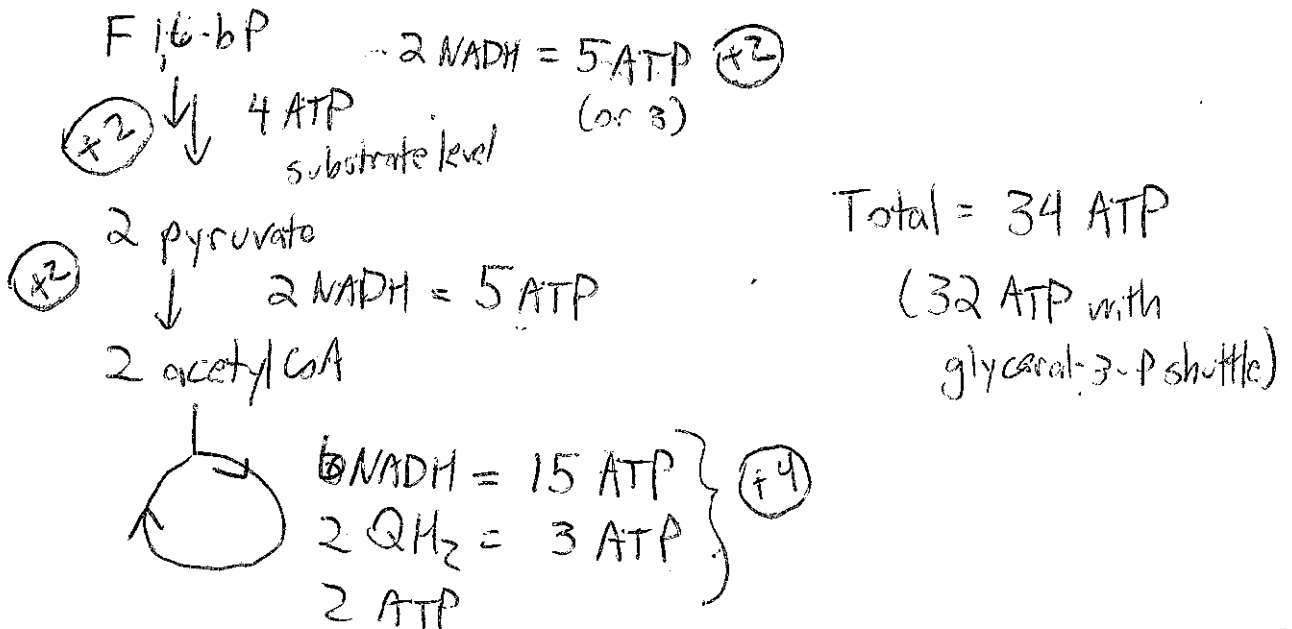 F 1,6-bP
2 NADH = 5 ATP +2
(or 3)
+2 4 ATP
substrate level
2 pyruvate
+2 2 NADH = 5 ATP
2 acetyl CoA
6 NADH = 15 ATP
2 QH2 = 3 ATP +4
2 ATP
Total = 34 ATP
(32 ATP with
glycerol-3-P shuttle)